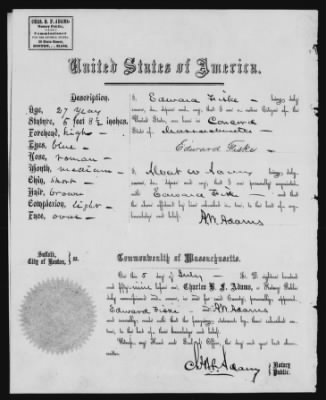 CHAS. B. F. ADAMS,
Notary Public,
Commissioner
BOSTON, MASS.
United States of America.
Description.
I, Edward Fiske — being duly
Age, 27 years
sworn, do depose and say, that I am a native Citizen of the
Stature, 5 feet 8 ½ inches.
United States, was born in Concord
Forehead, high —
State of Massachusetts —
Eyes, blue —
Edward Fiske —
Nose, roman —
Mouth, medium —
I, Adams being duly
Chin, short —
sworn, do depose and say, that I am personally acquainted
Hair, brown
with Edward Fiske — and that
Complexion, light —
the above affidavit by him subscribed is true, to the best of my
Face, oval —
knowledge and belief.
A.W. Adams
Suffolk,
City of Boston, } ss.
Commonwealth of Massachusetts.
On the 5 day of July — A. D. eighteen hundred
and fifty nine before me, Charles B. F. Adams, a Notary Public
duly commissioned and sworn, in and for said County, personally appeared
Edward Fiske — & A.W. Adams
and severally made oath that the foregoing statements by them subscribed
are true, to the best of their knowledge and belief.
Witness, my Hand and Seal of Office, the day and year last above
written.
Adams
Notary
Public.